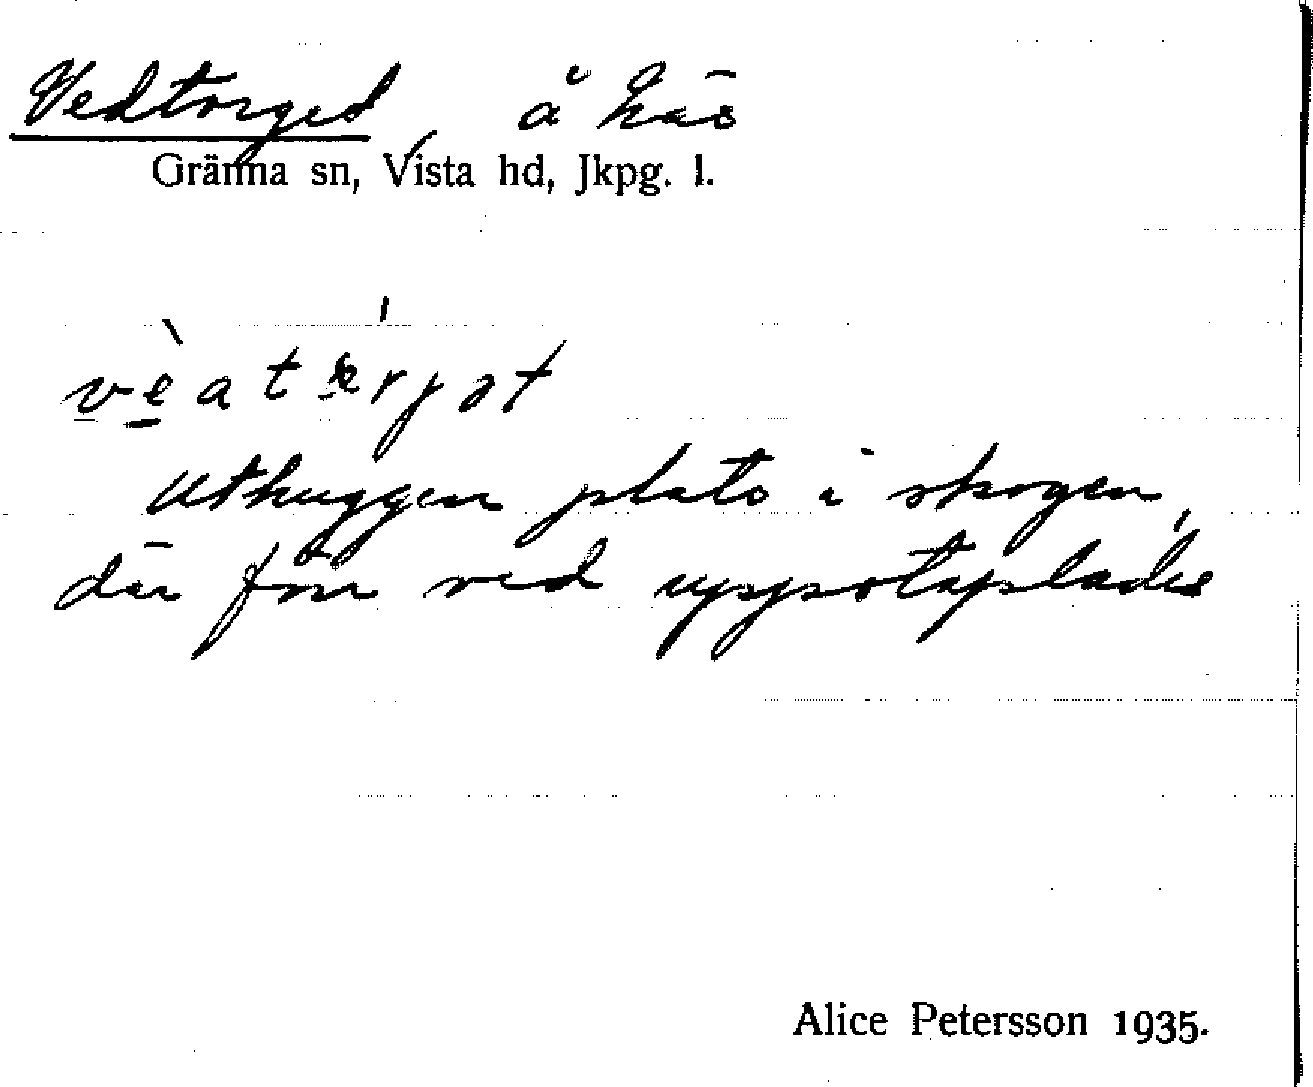 Vedtorget, å häs
Gränna sn, Vista hd, Jkpg. l.
uthuggen plats i skogen,
där förr ved uppstaplades
Alice Petersson 1935.